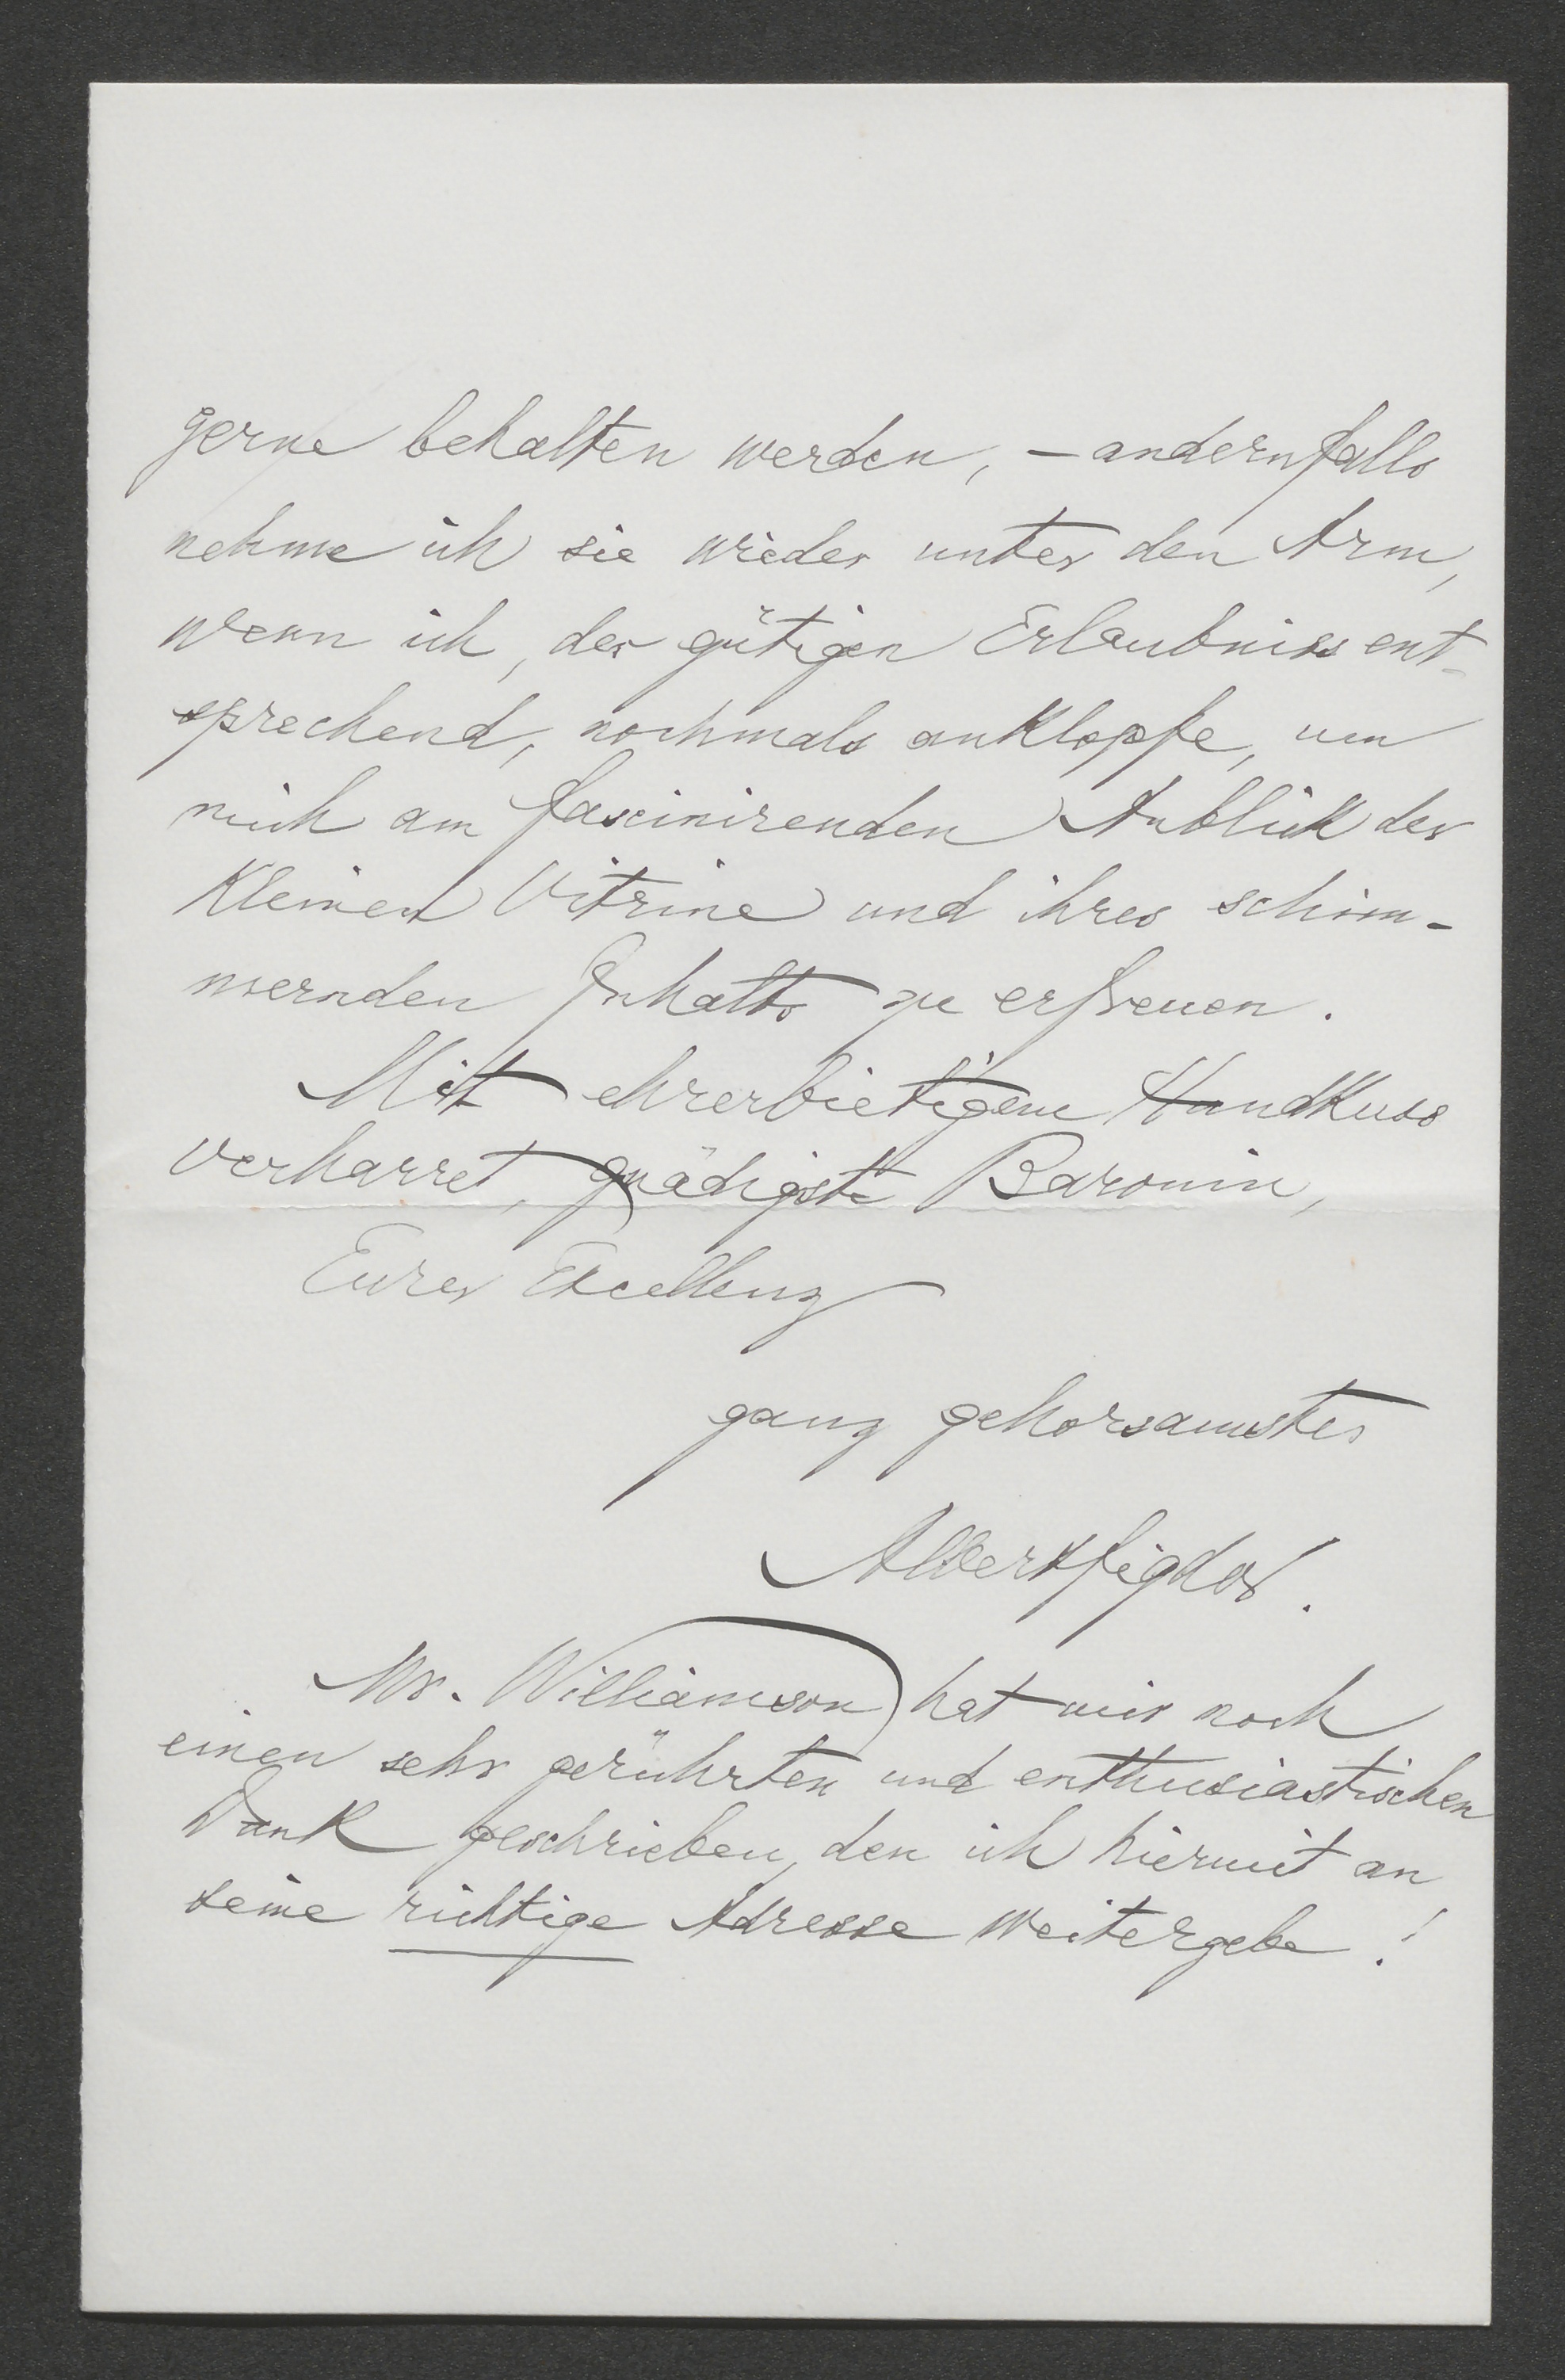 gerne behalten werden, – andernfalls
nehme ich sie wieder unter den Arm,
wenn ich, der gütigen Erlaubniss ent-
sprechend, nochmals anklopfe, um
mich am fascinirenden Anblick der
kleinen Vitrine und ihres schim-
mernden Inhalts zu erfreuen.
Mit ehrerbietigem Handkuss
verharret, gnädigste Baronin,
Eurer Excellenz
ganz gehorsamster
Albert Figdor.
Mr. Williamson hat mir noch
einen sehr gerührten und enthusiastischen
Dank geschrieben, den ich hiermit an
seine richtige Adresse weitergebe!